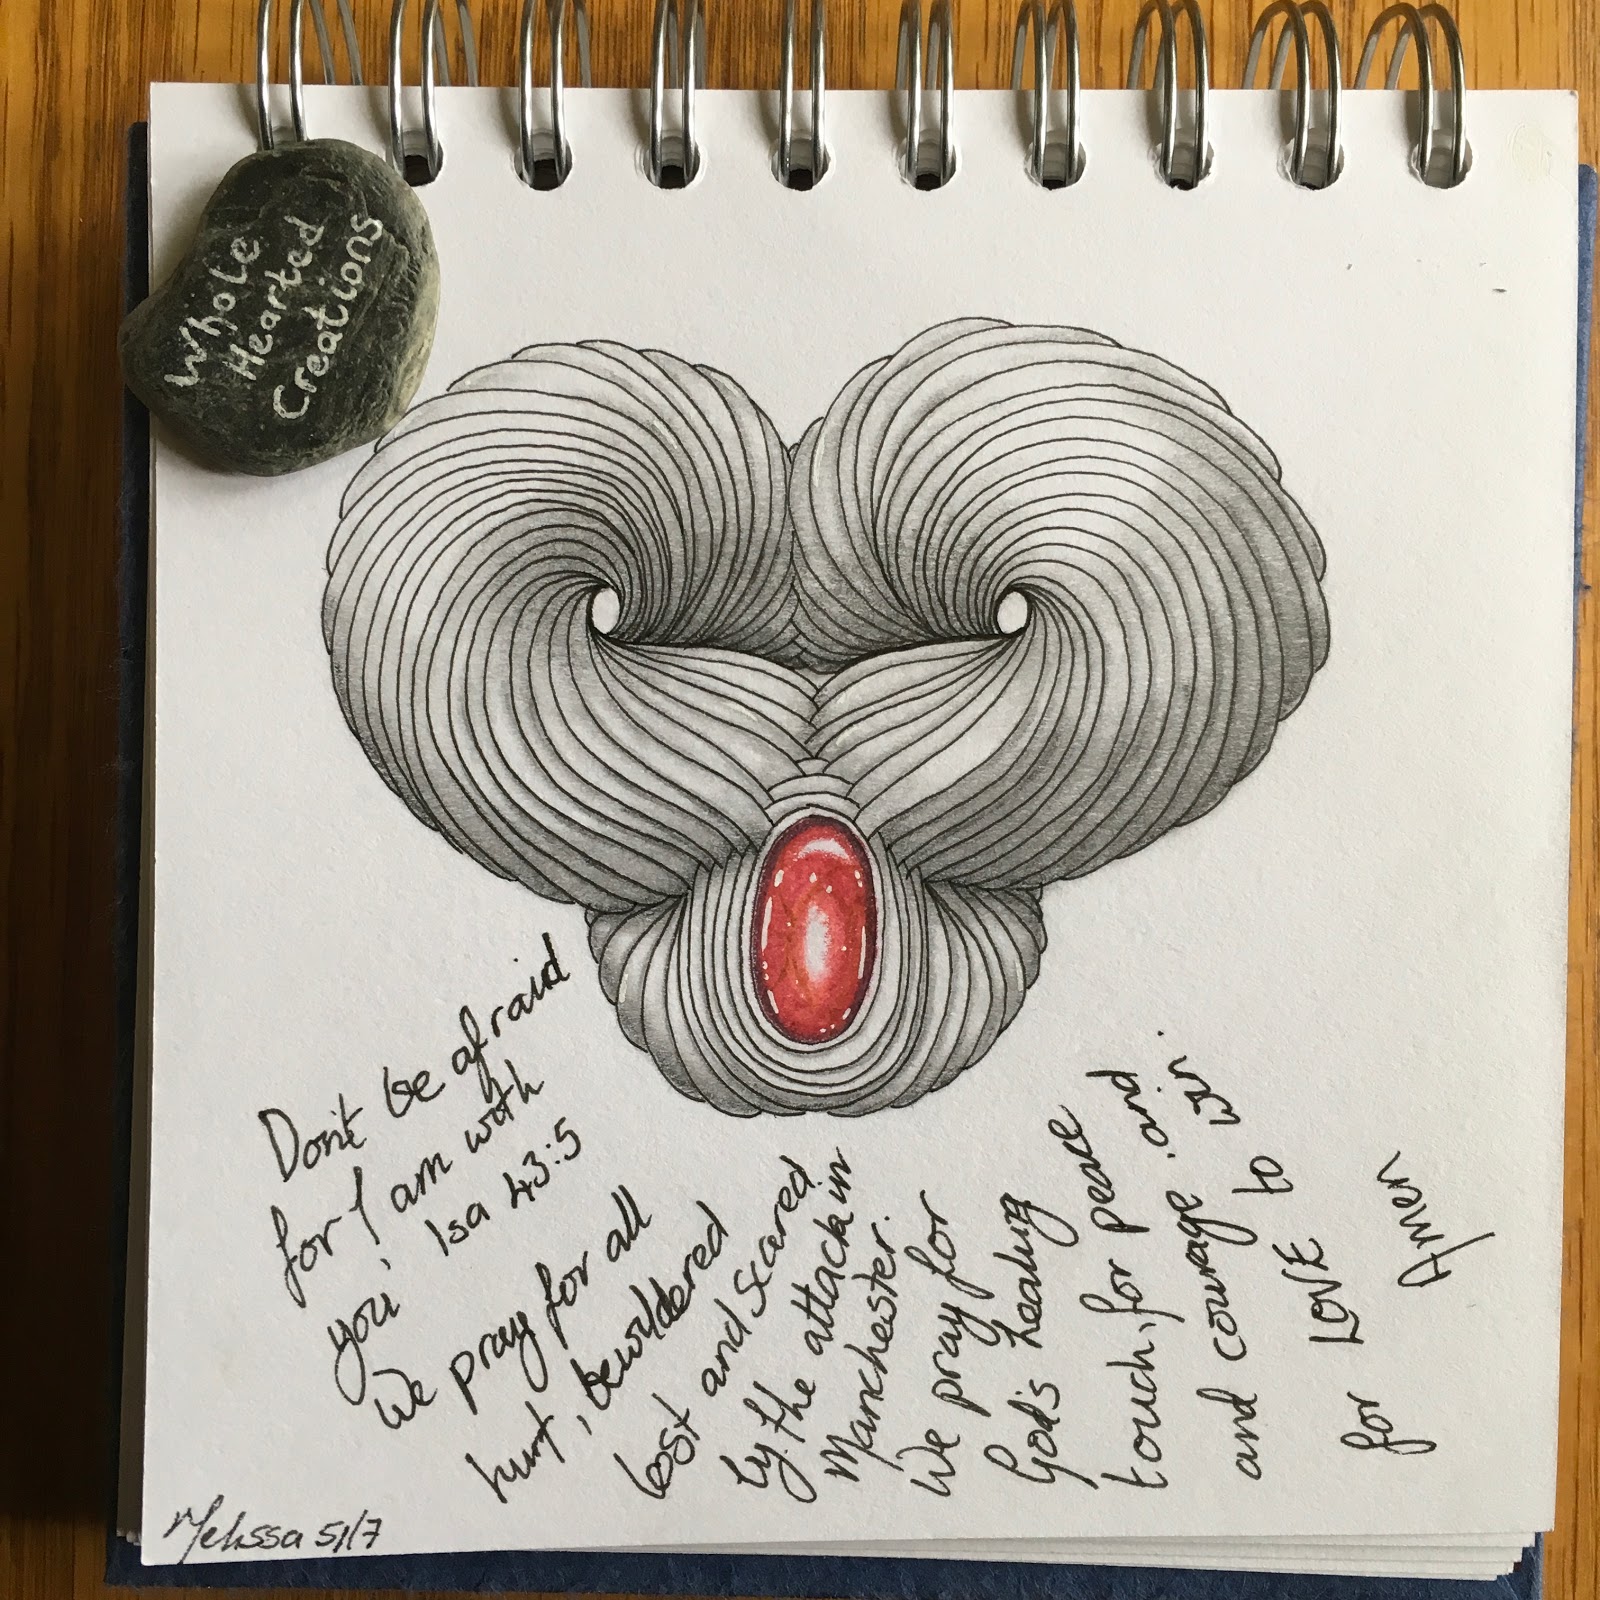 Whole
Hearted
Creations
Don't be afraid
for I am with
you, Isa 43:5
We pray for all
hurt, bewildered
lost and scared
by the attack in
Manchester.
We pray for
God's healing
touch, for peace
and courage and
for LOVE to win.
Amen
Melissa 5/17